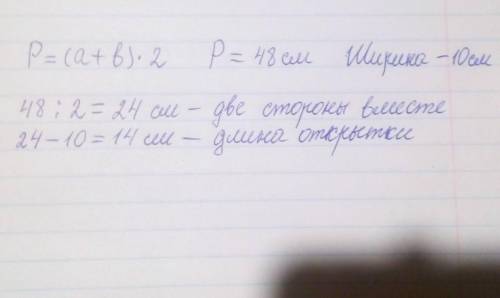 P=(a+b)·2 P=48см Ширина-10см
48:2=24 см - две стороны вместе
24-10=14 см - длина открытки